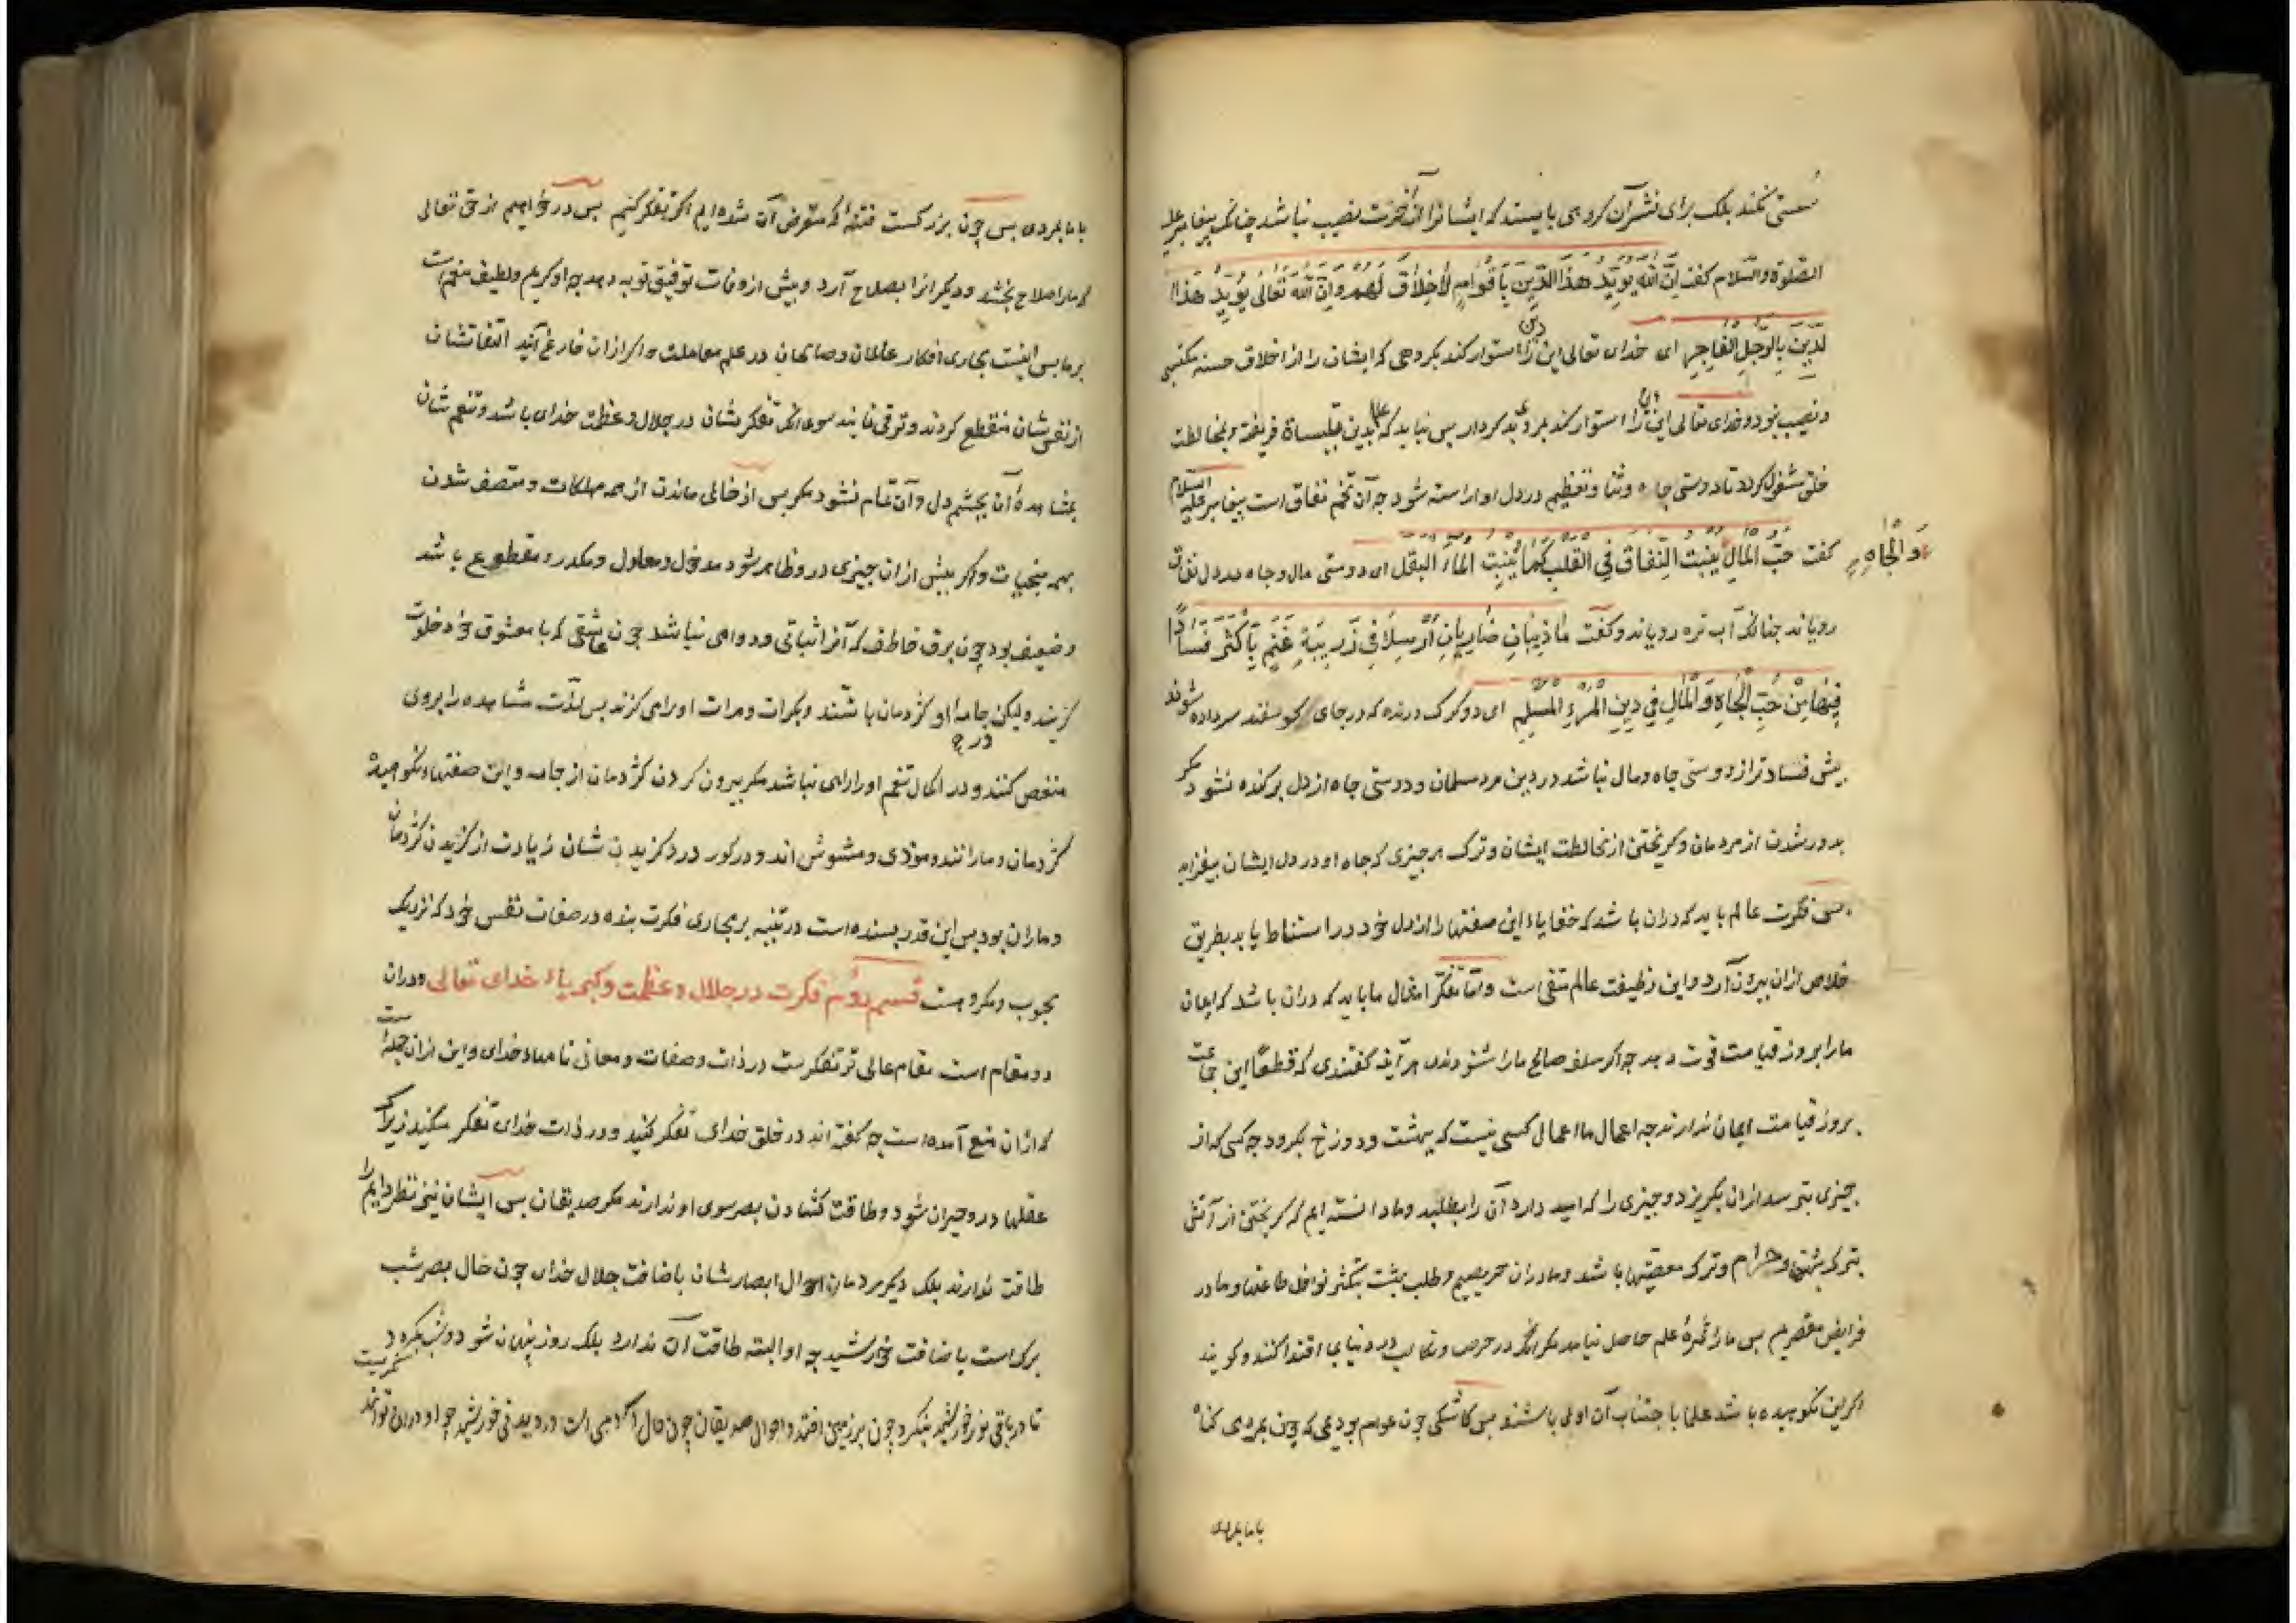 سستی نکنند بلک برای نشر آن گروهی بایستند که ایشانرا در آخرت نصیب نباشد چنانک پیغامبر علیه
الصّلوة والسّلام کفت اِنَّ اللهَ یُؤَیِّدُ هذَا الدِّینَ بِاَقْوَامٍ لاٰخَلاٰقَ لَهُم وَاِنَّ اللهَ تَعَالی یُؤَیِّدُ هَذَا
الدِّینَ بِالرَّجُلِ الفَاجِرِ ای خدای تعالی این دین را استوار کند بکروهی که ایشان را از اخلاق حسنه
و نصیب نبود و خدای تعالی این دین را استوار کند بمردی بد کردار پس نباید که علما بدین تلبیسات فریفته و بمخالطت
خلق مشغول کردد تا دوستی جاه و ثنا و تعظیم در دل او اراسته شود چه آن تخم نفاق است پیغامبر علیه السلام
کفت حُبُّ المَالِ وَالْجَاهِ یُنْبِتُ النِّفَاقَ فِی القَلْبِ کَمَا یُنْبِتُ المَاءُ البَقْلَ ای دوستی مال و جاه در دل نفاق
رویاند چنانک آب تره رویاند و کفت مَا ذِیبَانِ ضَارِیَانِ اُرْسِلاَ فِی زَرِیبَةِ غَنَمٍ بِاَکْثَرَ فَسَادًا
فِیهَا مِنْ حُبِّ الْجَاهِ وَالْمَالِ فِی دِینِ الْمَرْءِ الْمُسْلِمِ ای دو کرک درنده که در جای کوسفند سر داده شوند
بیش فساد تر از دوستی جاه و مال نباشد در دین مرد مسلمان و دوستی جاه از دل برکنده نشود مکر
بدور شدن از مردمان و کریختن از مخالطت ایشان و ترک هر چیزی که جاه او در دل ایشان بیفزاید
پس فکرت عالم باید که دران باشد که خفایاء این صفتها را از دل خود در استنباط یابد بطریق
خلاص ازان بیرون آرد و این وظیفت عالم متقی است و امّا تفکّر امثال ما باید که دران باشد که ایمان
ما را بروز قیامت قوت دهد چه اکر سلف صالح ما را شنودندی هر آینه کفتندی که قطعًا این جماعت
بروز قیامت ایمان ندارند چه اعمال ما اعمال کسی نیست که ببهشت و دوزخ بکرود چه کسی که از
چیزی بترسد ازان بکریزد و چیزی را که امید دارد آن را بطلبد و ما دانسته ایم که کریختن از آتش
بترک شبهتها و حرام و ترک معصیتها باشد و ما دران حریصیم و طلب بهشت بتکثر نوافل طاعتها و ما در
فرایض مقصریم پس ما را ثمرهٔ علم حاصل نیامد مکر انک در حرص و تکالب در دنیا بما اقتدا کنند و کویند
اکر این نکوهیده باشد علما باجتناب آن اولی باشند پس کاشکی چون عوام بودیمی که چون بمردی کناه
با ما بمردی
با ما بمردی پس چون بزرکست فتنهٔ که متعرض آن شده ایم اکر تفکر کنیم پس در خواهیم از حق تعالی
که ما را صلاح بخشد و دیکرانرا بصلاح آرد و پیش از وفات توفیق توبه دهد چه او کریم و لطیف منعم است
بر ما پس اینست مجاری افکار عالمان و صالحان در علم معاملت و اکر ازان فارغ آیند التفاتشان
از نفس شان منقطع کردد و ترقی نمایند سوی انک تفکر شان در جلال و عظمت خدای باشد و تنعم شان
بمشاهدهٔ آن بچشم دل و آن تمام نشود مکر پس از خالی ماندن از همه مهلکات و متصف شدن
بهمه منجیات و اکر پیش ازان چیزی درو ظاهر شود مدخول و معلول و مکدر و مقطوع باشد
و ضعیف بود چون برق خاطف که آنرا ثباتی و دوامی نباشد چون عاشقی که با معشوق خود خلوت
کزیند ولیکن در جامهٔ او کژدمان باشند و بکرات و مرات او را می کزند پس لذّت مشاهده را بروی
منغص کنند و در کمال تنعم او را راهی نباشد مکر بیرون کردن کژدمان از جامه و این صفتهاء نکوهیده
کژدمان و مارانند و موذی و مشوش اند و در کور درد کزیدن شان زیادت از کزیدن کژدمان
و ماران بود پس این قدر بسنده است در تنبیه بر مجاری فکرت بنده در صفات نفس خود که نزدیک
محبوب و مکروهست قسم دوّم فکرت در جلال و عظمت و کبریاء خدای تعالی و دران
دو مقام است مقام عالی تر تفکرست در ذات و صفات و معانی نامهاء خدای و این ازان جمله است
که ازان منع آمده است چه کفته اند در خلق خدای تفکر کنید و در ذات خدای تفکر مکنید زیراک
عقلها درو حیران شود و طاقت کشادن بصر سوی او ندارند مکر صدیقان پس ایشان نیز نظر دایم را
طاقت ندارند بلک دیکر مردمان احوال ابصارشان باضافت جلال خدای چون حال بصر شب
پرک است باضافت خورشید چه او البته طاقت آن ندارد بلک روز پنهان شود و شب بکردد
تا در باقی نور خورشید بنکرد چون بر زمین افتد و احوال صدیقان چون حال آدمی است در دیدن خورشید چه او دران تواند نکریست